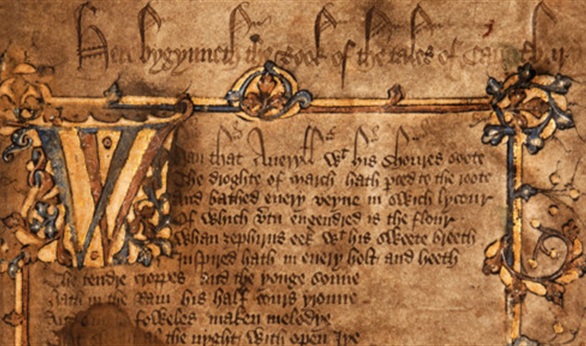 Here bygynneth the Book of the tales of Caunterbury
Whan that Aueryll wt his shoures soote
The droghte of March hath pced to the roote
And bathed euery veyne in swich lycour
Of which vtu engendred is the flour
Whan zephirus eek wt his sweete breeth
Inspired hath in euery holt and heeth
The tendre croppes and the yonge sonne
Hath in the Ram his half cours yronne
foweles maken melodye
al the nyght with open Iye